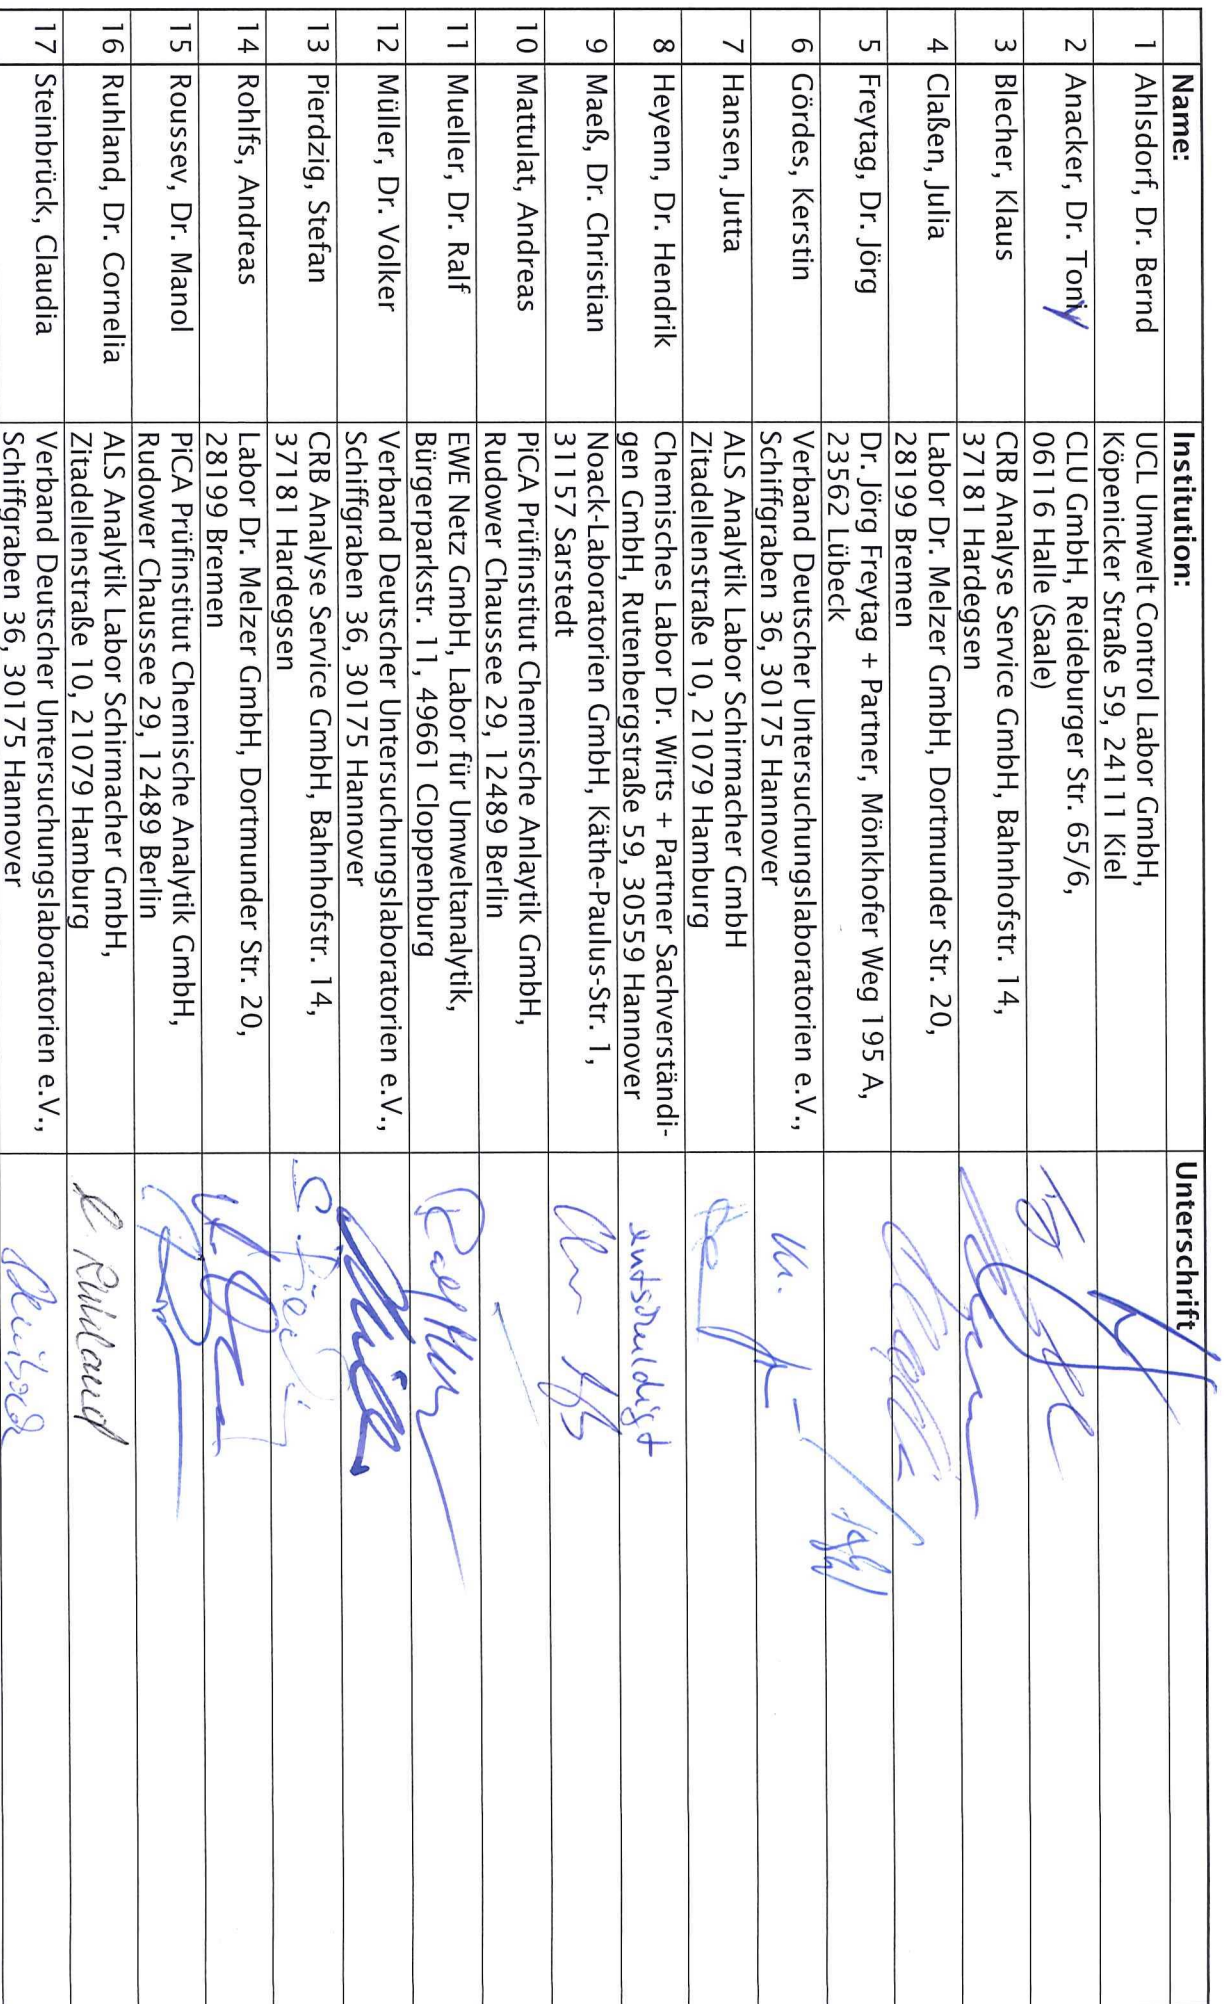 Name: Institution: Unterschrift
1 Ahlsdorf, Dr. Bernd UCL Umwelt Control Labor GmbH,
Köpenicker Straße 59, 24111 Kiel
2 Anacker, Dr. Tony CLU GmbH, Reideburger Str. 65/6,
06116 Halle (Saale)
3 Blecher, Klaus CRB Analyse Service GmbH, Bahnhofstr. 14,
37181 Hardegsen
4 Claßen, Julia Labor Dr. Melzer GmbH, Dortmunder Str. 20,
28199 Bremen
5 Freytag, Dr. Jörg Dr. Jörg Freytag + Partner, Mönkhofer Weg 195 A,
23562 Lübeck
6 Gördes, Kerstin Verband Deutscher Untersuchungslaboratorien e.V.,
Schiffgraben 36, 30175 Hannover
7 Hansen, Jutta ALS Analytik Labor Schirmacher GmbH
Zitadellenstraße 10, 21079 Hamburg
8 Heyenn, Dr. Hendrik Chemisches Labor Dr. Wirts + Partner Sachverständi-
gen GmbH, Rutenbergstraße 59, 30559 Hannover
entschuldigt
9 Maeß, Dr. Christian Noack-Laboratorien GmbH, Käthe-Paulus-Str. 1,
31157 Sarstedt
10 Mattulat, Andreas PiCA Prüfinstitut Chemische Anlaytik GmbH,
Rudower Chaussee 29, 12489 Berlin
11 Mueller, Dr. Ralf EWE Netz GmbH, Labor für Umweltanalytik,
Bürgerparkstr. 11, 49661 Cloppenburg
12 Müller, Dr. Volker Verband Deutscher Untersuchungslaboratorien e.V.,
Schiffgraben 36, 30175 Hannover
13 Pierdzig, Stefan CRB Analyse Service GmbH, Bahnhofstr. 14,
37181 Hardegsen
14 Rohlfs, Andreas Labor Dr. Melzer GmbH, Dortmunder Str. 20,
28199 Bremen
15 Roussev, Dr. Manol PiCA Prüfinstitut Chemische Analytik GmbH,
Rudower Chaussee 29, 12489 Berlin
16 Ruhland, Dr. Cornelia ALS Analytik Labor Schirmacher GmbH,
Zitadellenstraße 10, 21079 Hamburg
C. Ruhland
17 Steinbrück, Claudia Verband Deutscher Untersuchungslaboratorien e.V.,
Schiffgraben 36, 30175 Hannover